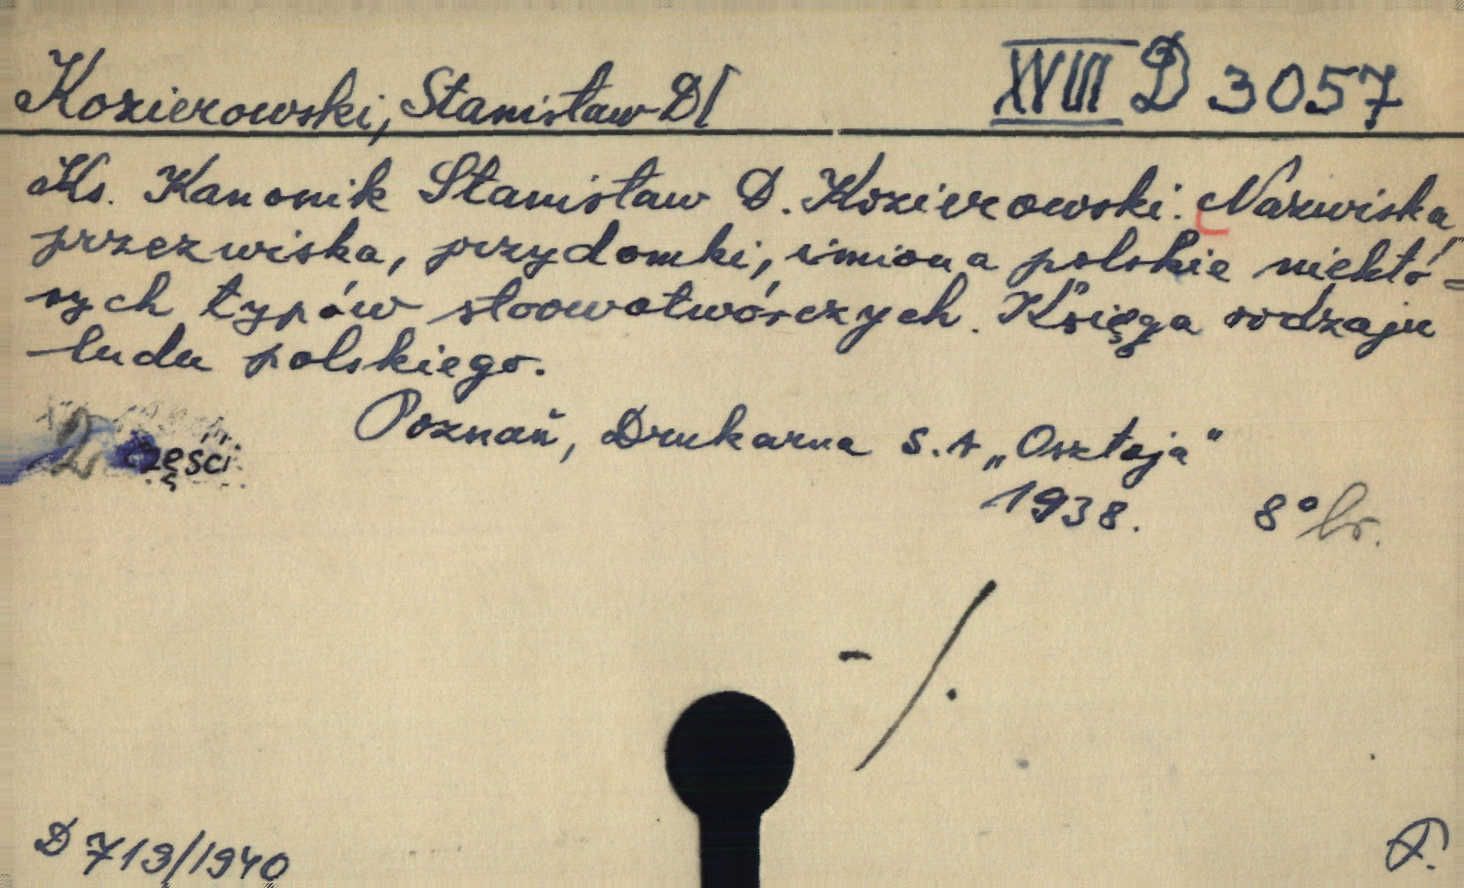 Kozierowski, Stanisław D[
XVIII D 3057
Ks. Kanonik Stanisław D. Kozierowski. Nazwiska,
przezwiska, przydomki, imiona polskie niektó-
rych typów słoowotwórczych. Księga rodzaju
ludu polskiego.
2 części.
Poznań, Drukarna S. A „Osztoja"
1938. 8° br.
-/.
D 719/1940